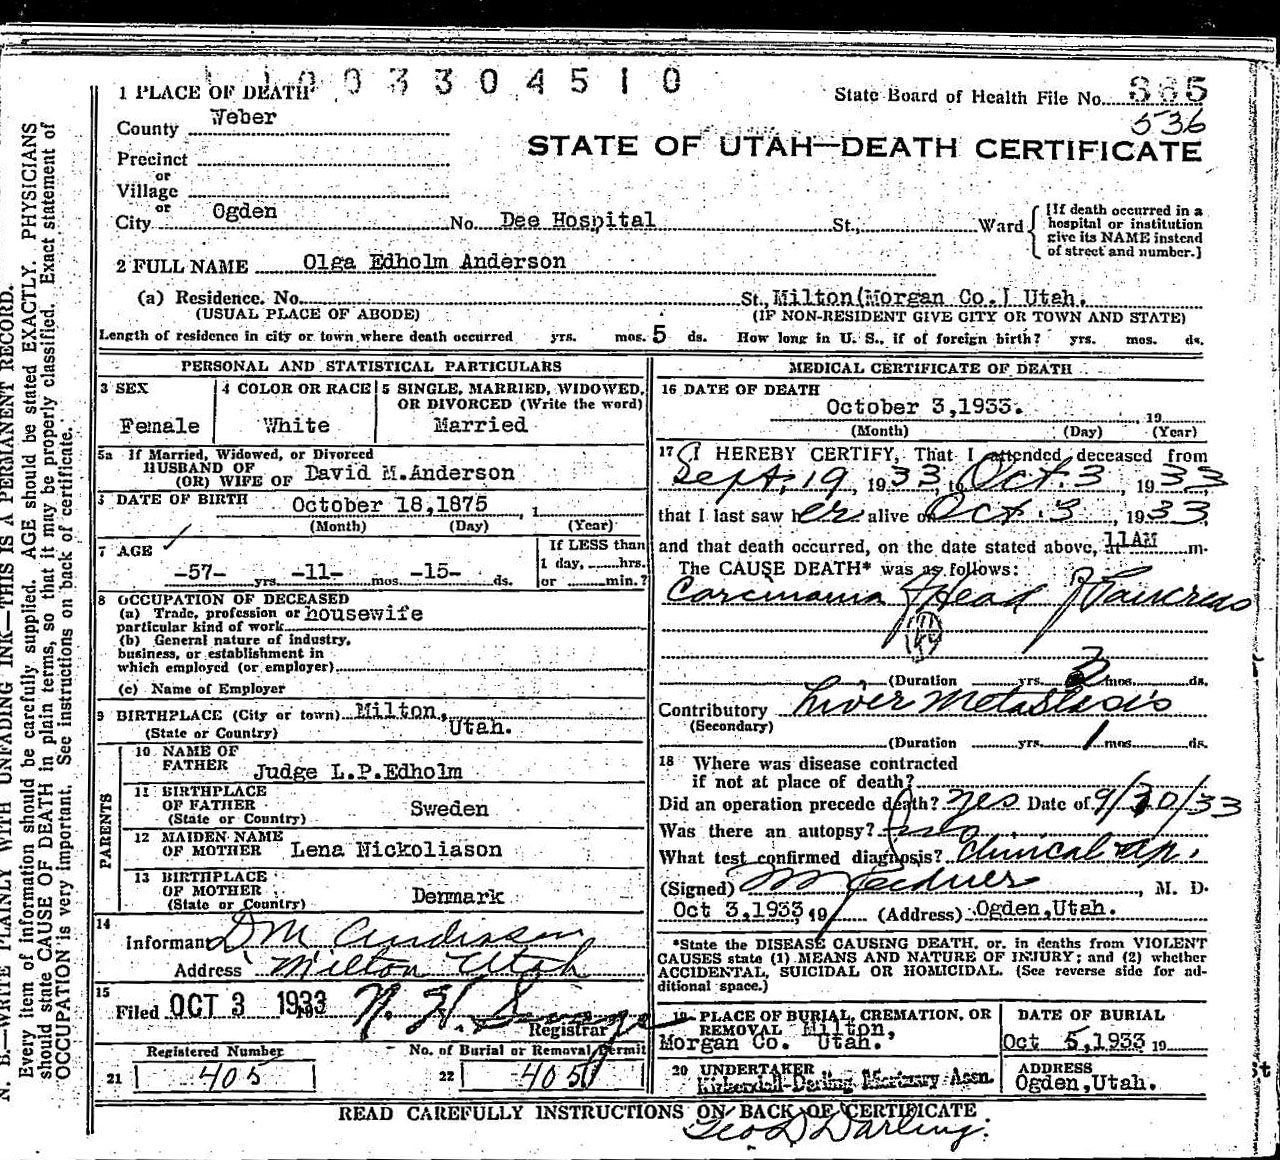 1 0 0 3 3 0 4 5 1 0
1 PLACE OF DEATH
State Board of Health File No. 365
536
County Weber
STATE OF UTAH—DEATH CERTIFICATE
Precinct
or
Village
or
City Ogden No. Dee Hospital St., Ward
[If death occurred in a hospital or institution give its NAME instead of street and number.]
2 FULL NAME Olga Edholm Anderson
(a) Residence. No. St., Milton(Morgan Co.) Utah.
(USUAL PLACE OF ABODE) (IF NON-RESIDENT GIVE CITY OR TOWN AND STATE)
Length of residence in city or town where death occurred yrs. mos. 5 ds. How long in U. S., if of foreign birth? yrs. mos. ds.
PERSONAL AND STATISTICAL PARTICULARS
3 SEX
Female
4 COLOR OR RACE
White
5 SINGLE, MARRIED, WIDOWED,
OR DIVORCED (Write the word)
Married
5a If Married, Widowed, or Divorced
HUSBAND OF
(OR) WIFE OF David M.Anderson
DATE OF BIRTH October 18,1875 , 1
(Month) (Day) (Year)
7 AGE
-57- yrs. -11- mos. -15- ds.
If LESS than
1 day, hrs.
or min.?
8 OCCUPATION OF DECEASED
(a) Trade, profession or
particular kind of work housewife
(b) General nature of industry,
business, or establishment in
which employed (or employer)
(c) Name of Employer
9 BIRTHPLACE (City or town) Milton,
(State or Country) Utah.
PARENTS
10 NAME OF
FATHER Judge L.P.Edholm
11 BIRTHPLACE
OF FATHER Sweden
(State or Country)
12 MAIDEN NAME
OF MOTHER Lena Nickoliason
13 BIRTHPLACE
OF MOTHER Denmark
(State or Country)
14
Informant D M Anderson
Address Milton Utah
15
Filed OCT 3 1933
Registrar
Registered Number
21 405
No. of Burial or Removal Permit
22 405
MEDICAL CERTIFICATE OF DEATH
16 DATE OF DEATH
October 3,1933. , 19
(Month) (Day) (Year)
17 I HEREBY CERTIFY, That I attended deceased from
Sept. 19, 1933, to Oct. 3, 1933
that I last saw her alive on Oct. 3, 1933
and that death occurred, on the date stated above, at 11AM m.
The CAUSE DEATH* was as follows:
Carcinoma of Head of Pancreas
(Duration yrs. mos. ds.
Contributory Liver Metastasis
(Secondary)
(Duration yrs. 1 mos. ds.
18 Where was disease contracted
if not at place of death?
Did an operation precede death? yes Date of 9/30/33
Was there an autopsy? no
What test confirmed diagnosis? Clinical op.
(Signed) , M. D.
Oct 3,1933 19 (Address) Ogden,Utah.
*State the DISEASE CAUSING DEATH, or, in deaths from VIOLENT
CAUSES state (1) MEANS AND NATURE OF INJURY; and (2) whether
ACCIDENTAL, SUICIDAL OR HOMICIDAL. (See reverse side for ad-
ditional space.)
19 PLACE OF BURIAL, CREMATION, OR
REMOVAL Milton,
Morgan Co. Utah.
DATE OF BURIAL
Oct 5,1933 19
20 UNDERTAKER
Kirkendall-Darling Mortuary Assn.
ADDRESS
Ogden,Utah.
READ CAREFULLY INSTRUCTIONS ON BACK OF CERTIFICATE
Geo D Darling.
N. B.—WRITE PLAINLY WITH UNFADING INK—THIS IS A PERMANENT RECORD.
Every item of information should be carefully supplied. AGE should be stated EXACTLY. PHYSICIANS
should state CAUSE OF DEATH in plain terms, so that it may be properly classified. Exact statement of
OCCUPATION is very important. See instructions on back of certificate.